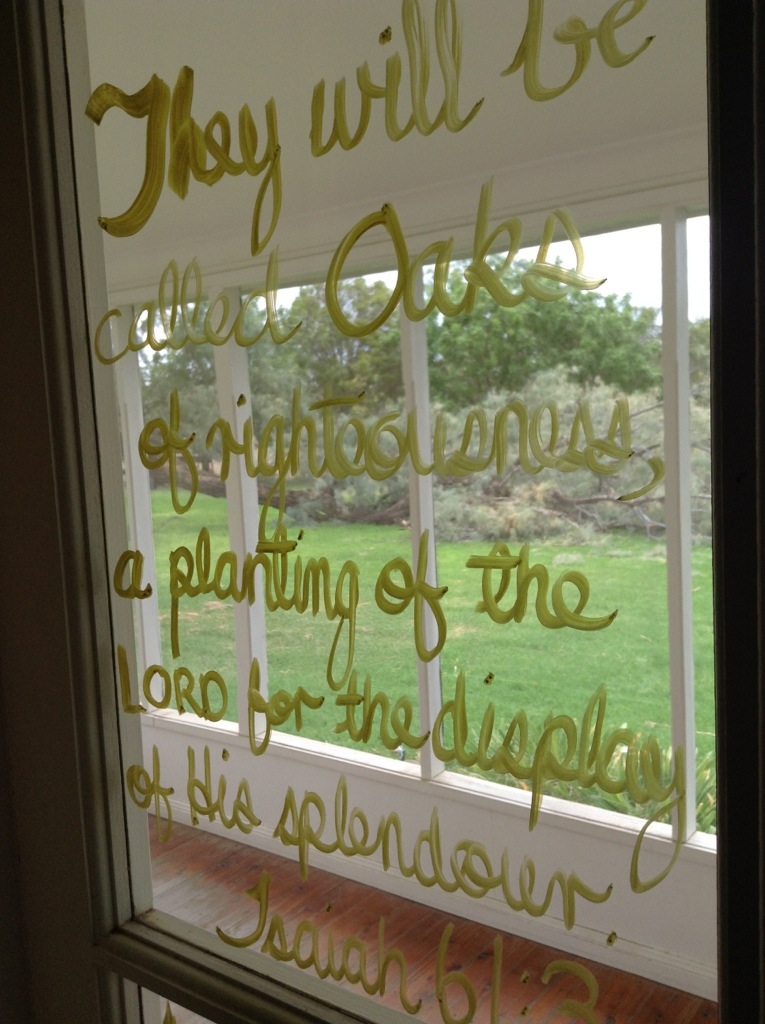 They will be
called Oaks
of righteousness,
a planting of the
LORD for the display
of His splendour.
Isaiah 61:3